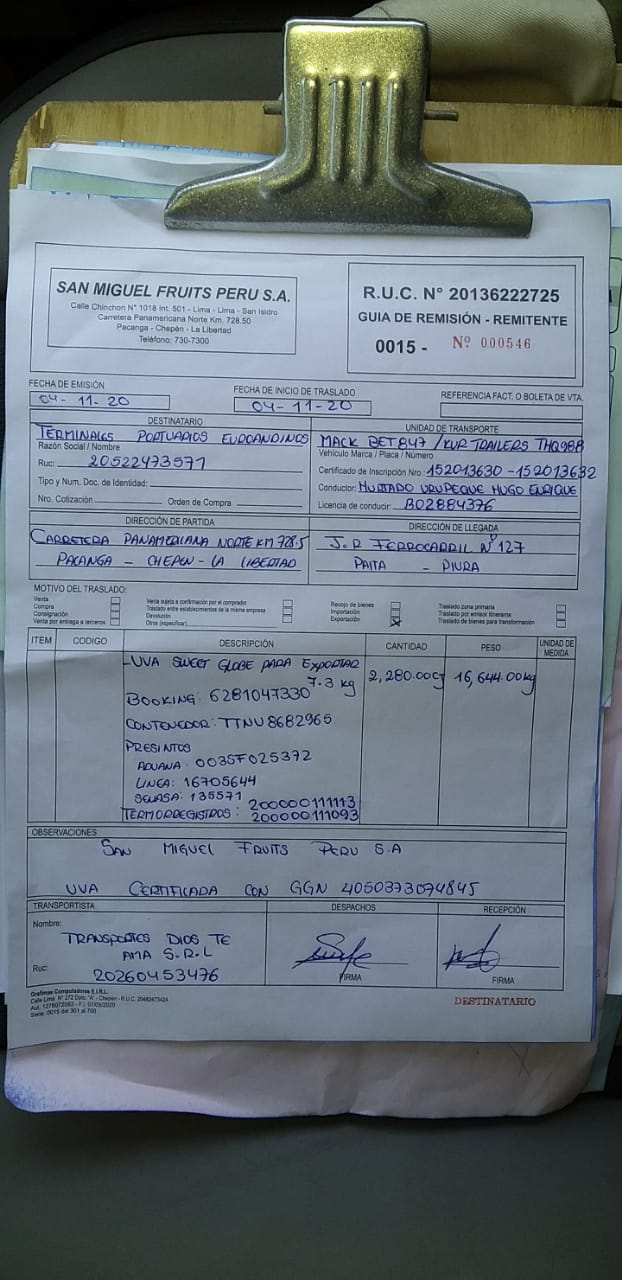 SAN MIGUEL FRUITS PERU S.A.
Calle Chinchon N° 1018 Int. 501 - Lima - Lima - San Isidro
Carretera Panamericana Norte Km. 728.50
Pacanga - Chepén - La Libertad
Teléfono: 730-7300
R.U.C. N° 20136222725
GUIA DE REMISIÓN - REMITENTE
0015 - Nº 000546
FECHA DE EMISIÓN
04-11-20
FECHA DE INICIO DE TRASLADO
04-11-20
REFERENCIA FACT. O BOLETA DE VTA.
DESTINATARIO
TERMINALES PORTUARIOS EUROANDINOS
Razón Social / Nombre
Ruc: 20522473571
Tipo y Num. Doc. de Identidad:
Nro. Cotización: Orden de Compra:
UNIDAD DE TRANSPORTE
MACK BET847 / KUR TRAILERS THQ988
Vehículo Marca / Placa / Número
Certificado de Inscripción Nro: 152013630 - 152013632
Conductor: HURTADO URUPEQUE HUGO ENRIQUE
Licencia de conducir: B02884376
DIRECCIÓN DE PARTIDA
CARRETERA PANAMERICANA NORTE KM 728.5
PACANGA - CHEPEN - LA LIBERTAD
DIRECCIÓN DE LLEGADA
J.R FERROCARRIL Nº 127
PAITA - PIURA
MOTIVO DEL TRASLADO:
Venta
Compra
Consignación
Venta por entrega a terceros
Venta sujeta a confirmación por el comprador
Traslado entre establecimientos de la misma empresa
Devolución
Otros (especificar)
Recojo de bienes
Importación
Exportación X
Traslado zona primaria
Traslado por emisor itinerante
Traslado de bienes para transformación
ITEM CODIGO DESCRIPCIÓN CANTIDAD PESO UNIDAD DE MEDIDA
-UVA SWEET GLOBE PARA EXPORTAR 2,280.00 16,644.00kg
7.3 kg
BOOKING: 6281047330
CONTENEDOR: TTNU 8682965
PRESINTOS
ADUANA: 0035F025372
LINEA: 16705644
SENASA: 135571
TERMORREGISTROS: 200000111113
200000111093
OBSERVACIONES
SAN MIGUEL FRUITS PERU S.A
UVA CERTIFICADA CON GGN 4050373074845
TRANSPORTISTA
Nombre:
TRANSPORTES DIOS TE
AMA S.R.L
Ruc: 20260453476
DESPACHOS
FIRMA
RECEPCIÓN
FIRMA
Grafimas Computadoras E.I.R.L.
Serie: 0015 del 301 al 700
DESTINATARIO